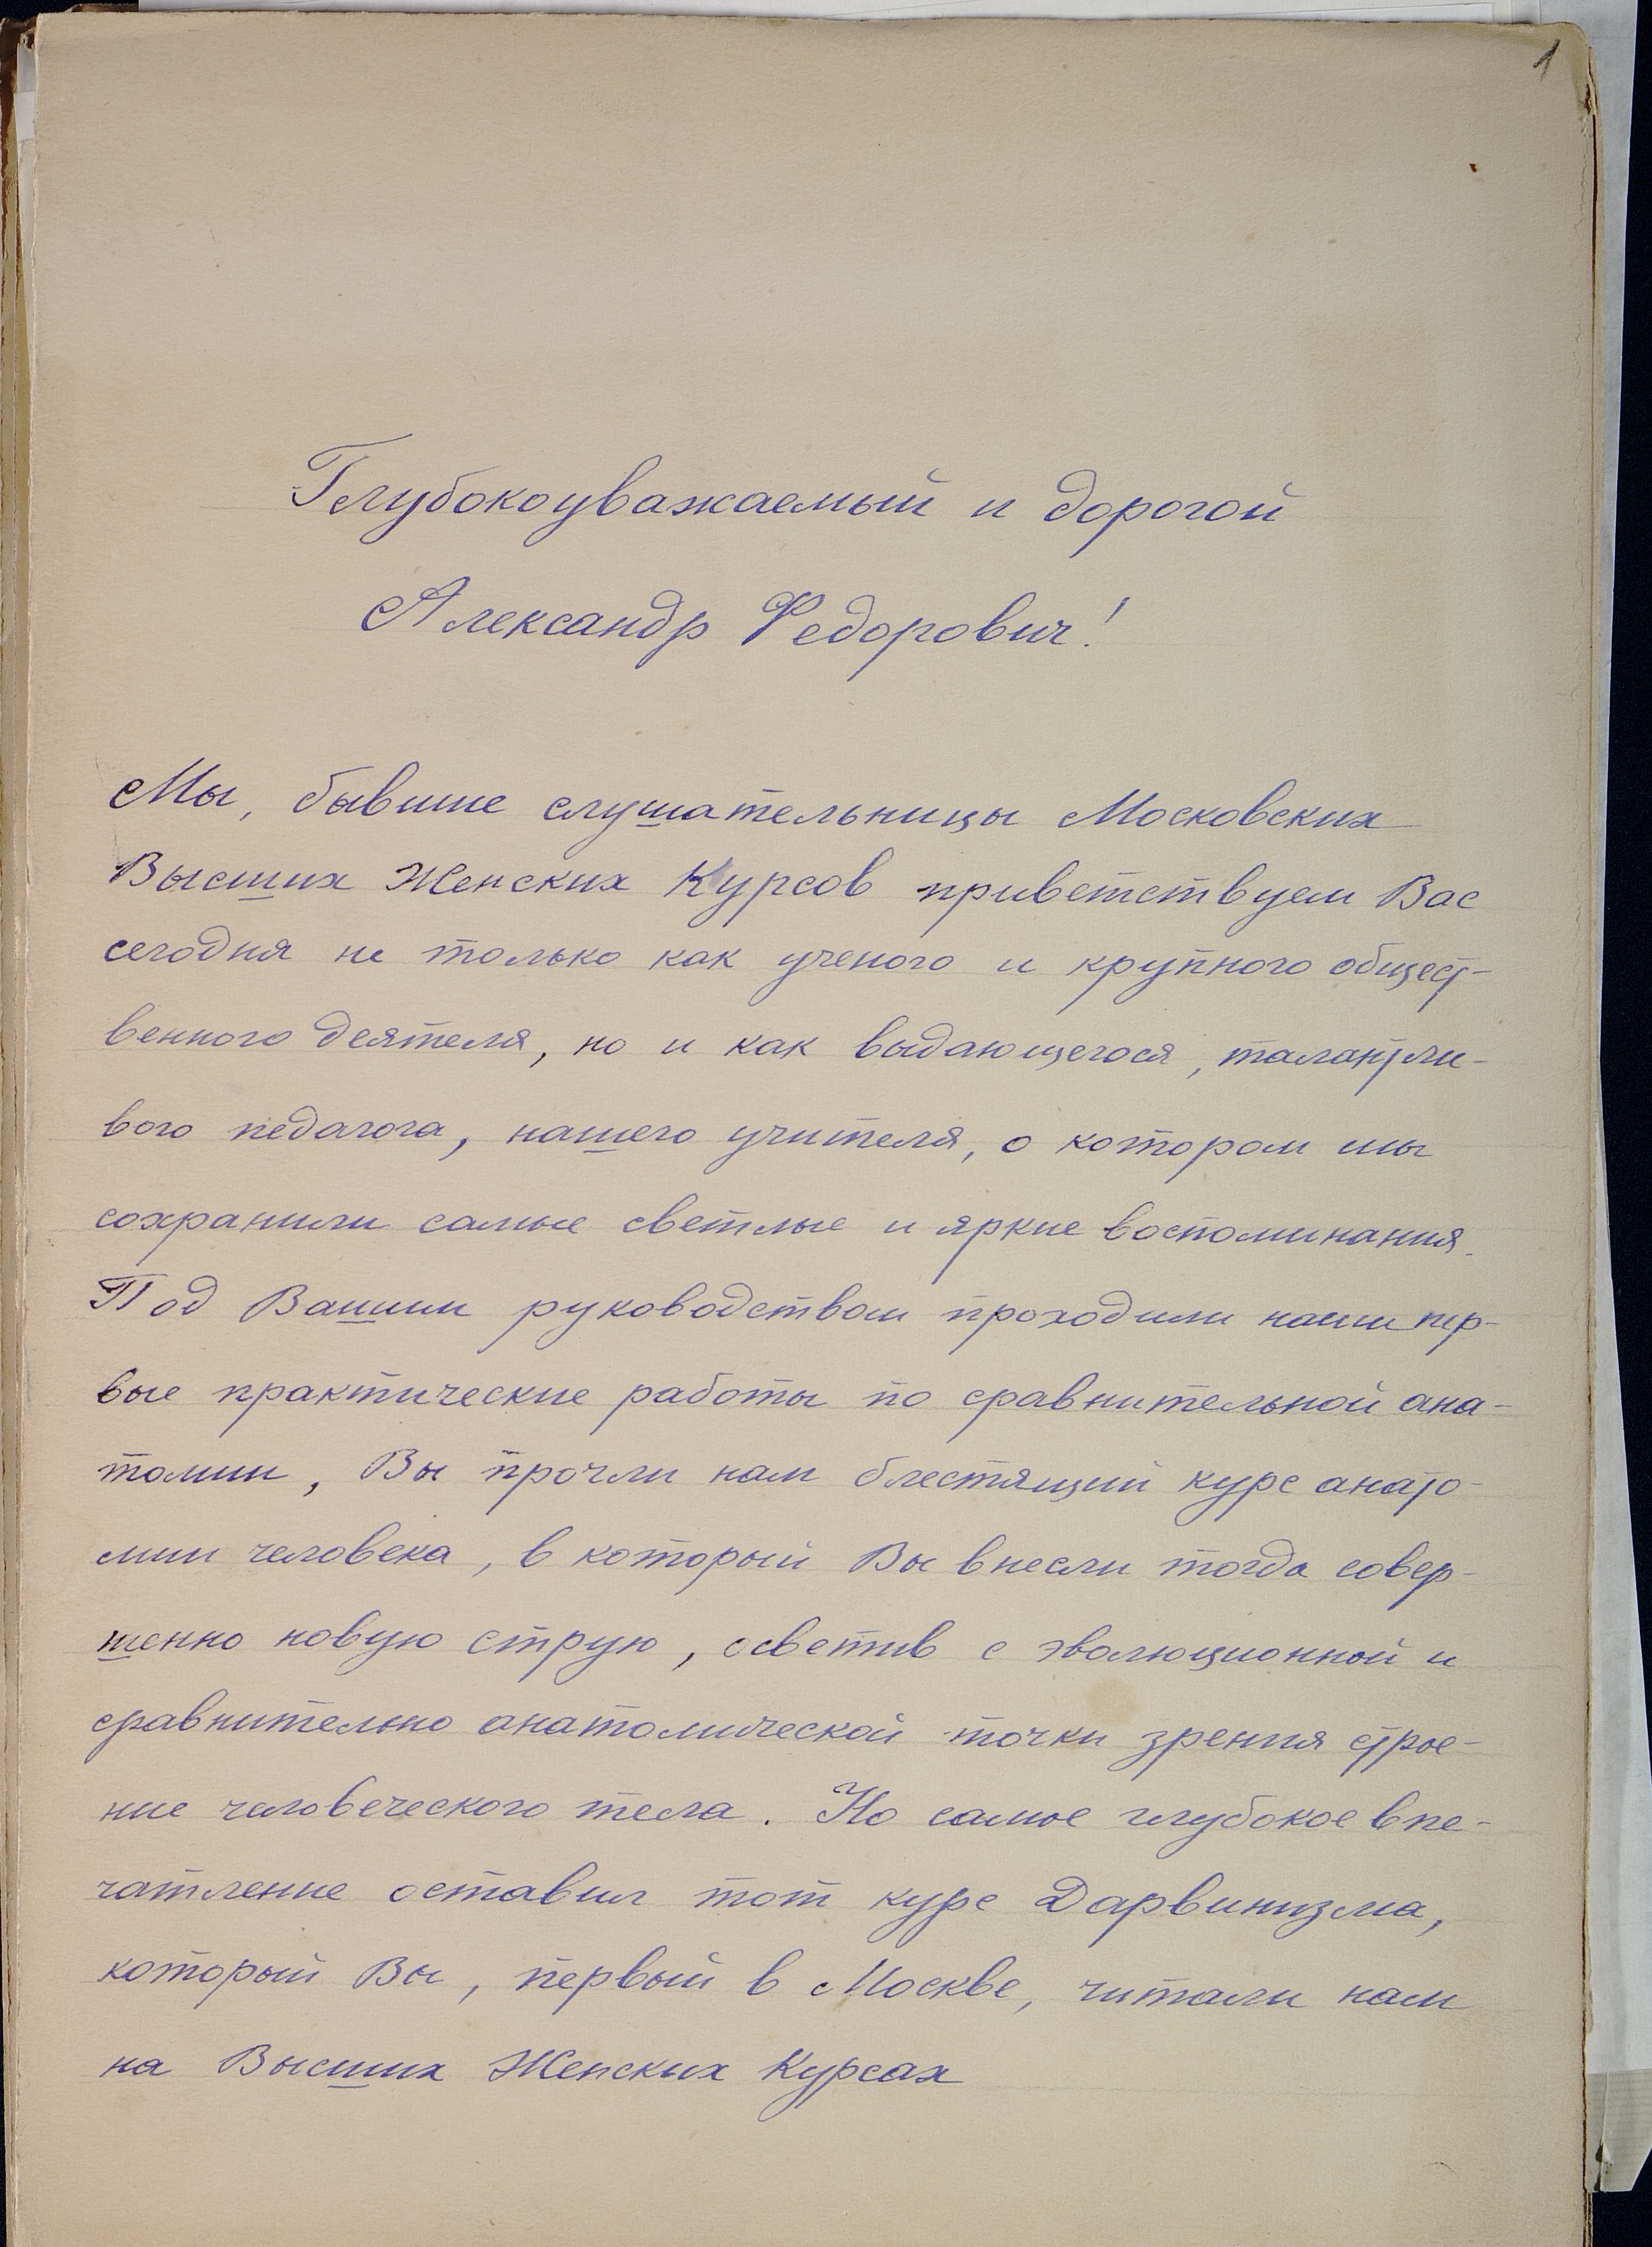 1
Глубокоуважаемый и дорогой
Александр Федорович!
Мы, бывшие слушательницы Московских
Высших Женских Курсов приветствуем Вас
сегодня не только как ученого и крупного общест-
венного деятеля, но и как выдающегося, талантли-
вого педагога, нашего учителя, о котором мы
сохранили самые светлые и яркие воспоминания.
Под Вашим руководством проходили наши пер-
вые практические работы по сравнительной ана-
томии, Вы прочли нам блестящий курс анато-
мии человека, в который Вы внесли тогда совер-
шенно новую струю, осветив с эволюционной и
сравнительно анатомической точки зрения строе-
ние человеческого тела. Но самое глубокое впе-
чатление оставил тот курс Дарвинизма,
который Вы, первый в Москве, читали нам
на Высших Женских Курсах